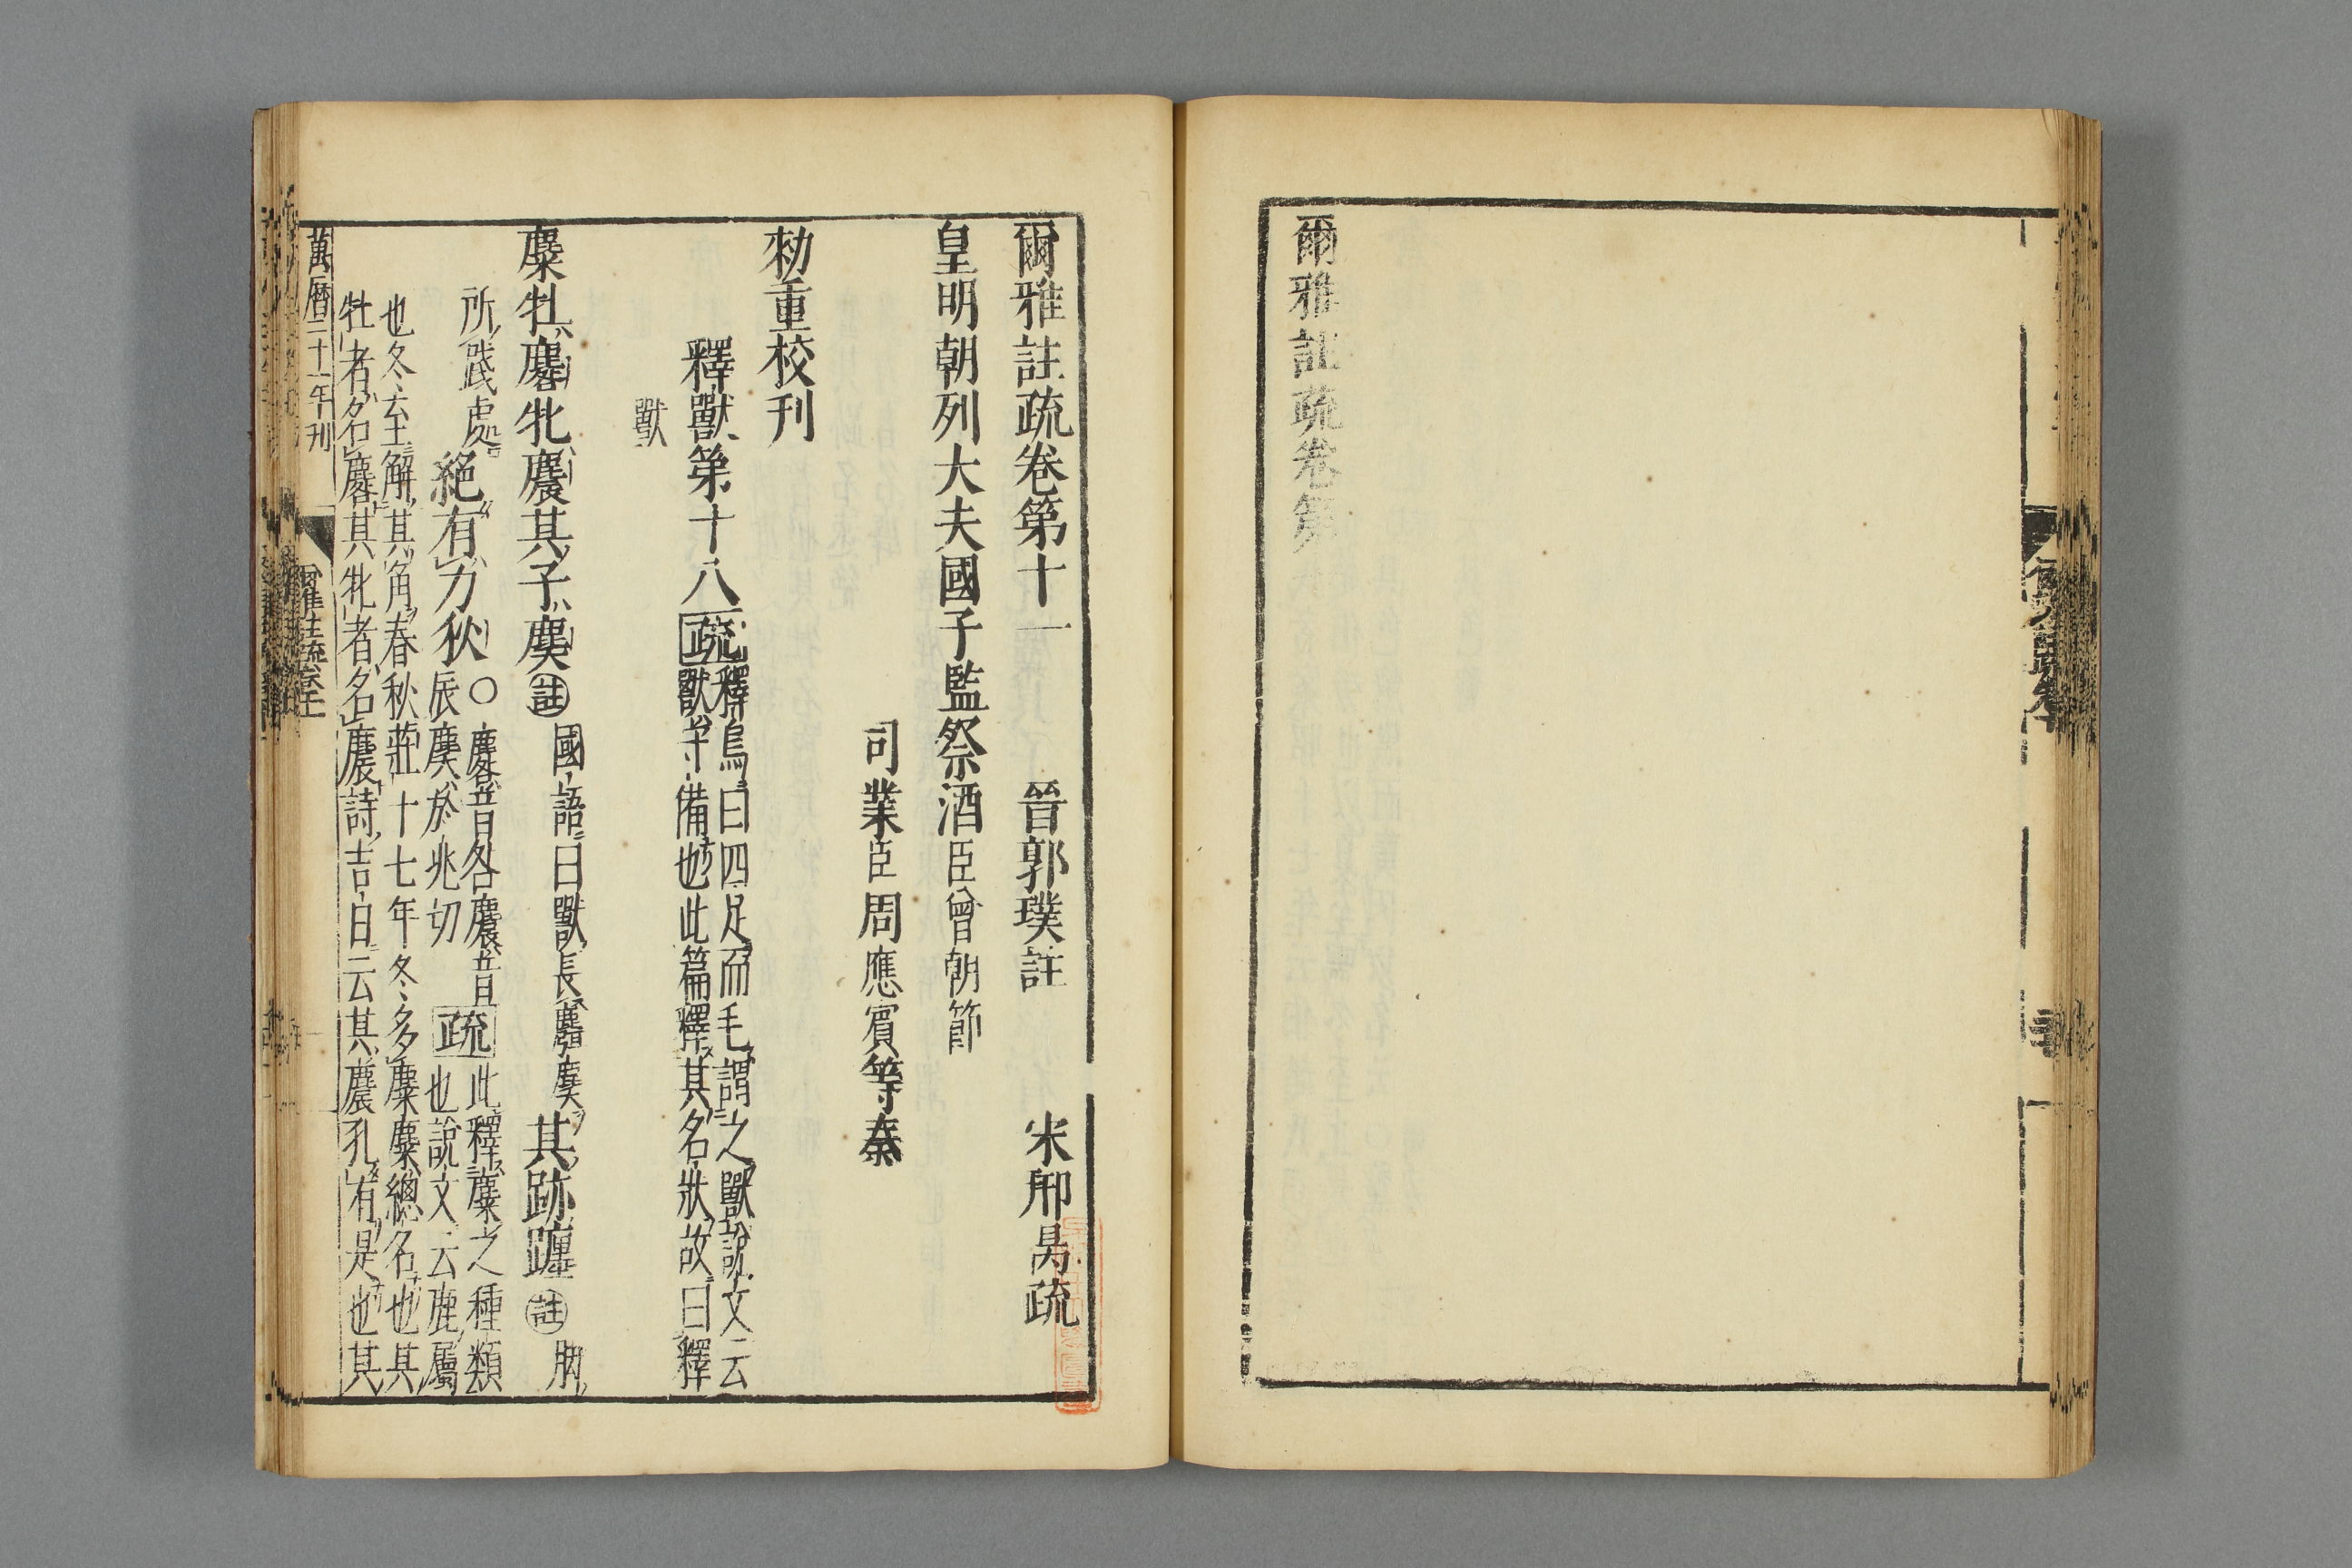 爾雅註疏卷第
爾雅註疏卷第十一 晉郭璞註 宋邢昺疏
皇明朝列大夫國子監祭酒臣曾朝節
司業臣周應賓等奉
勑重校刊
釋獸第十八疏釋鳥曰四足而毛謂之獸說文云
獸守備也此篇釋其名狀故曰釋
獸
麋牡麔牝麎其子䴠註國語曰獸長麛䴠其跡躔註脚
所踐處絕有力狄○麔音咎麎音
辰䴠於兆切疏此釋麋之種類
也說文云鹿屬
也冬至解其角春秋莊十七年冬多麋麋總名也其
牡者名麔其牝者名麎詩吉日云其麎孔有是也其
萬曆二十一年刊
爾雅註疏卷十一